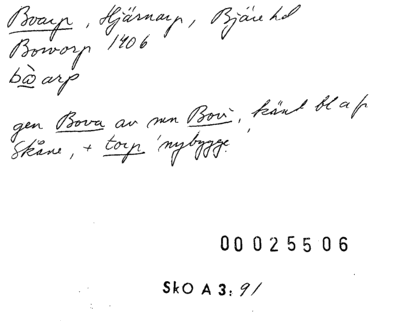 Boarp, Hjärnarp, Bjäre hd
Boworp 1406
bòarp
gen Bova av mn Bovi, känt bl a fr
Skåne, + torp 'nybygge'
00025506
SkO A 3: 91